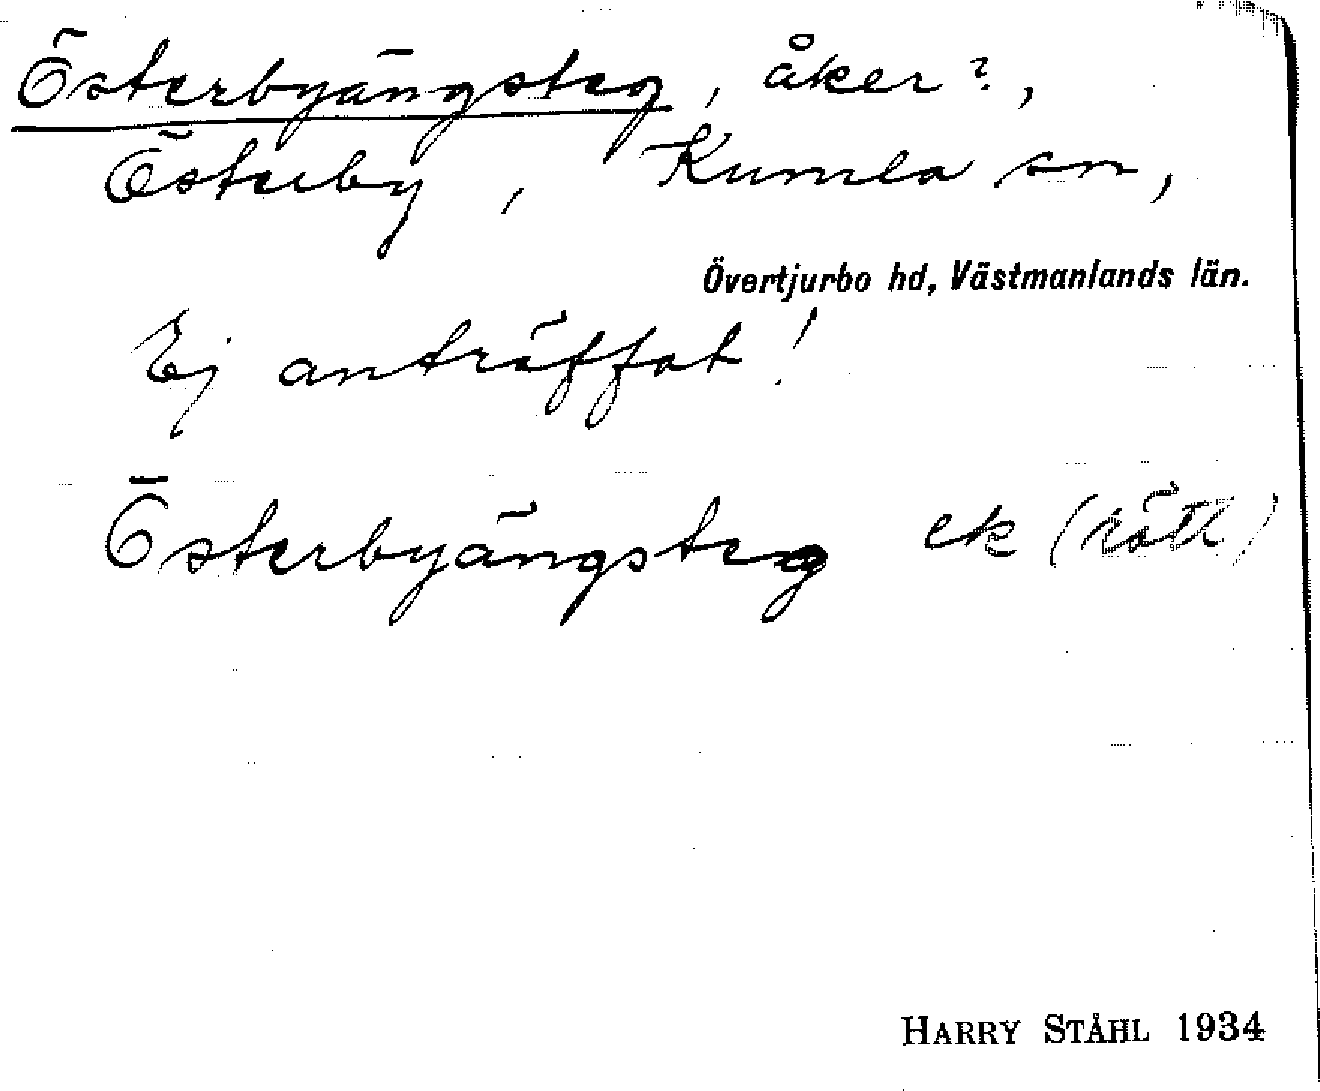 Österbyängsteg, åker?,
Österby, Kumla sn,
Övertjurbo hd, Västmanlands län.
Ej anträffat!
Österbyängsteg ek (rätl)
HARRY STÅHL 1934